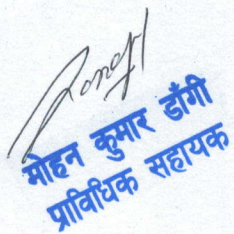 मोहन कुमार डाँगी
प्राविधिक सहायक